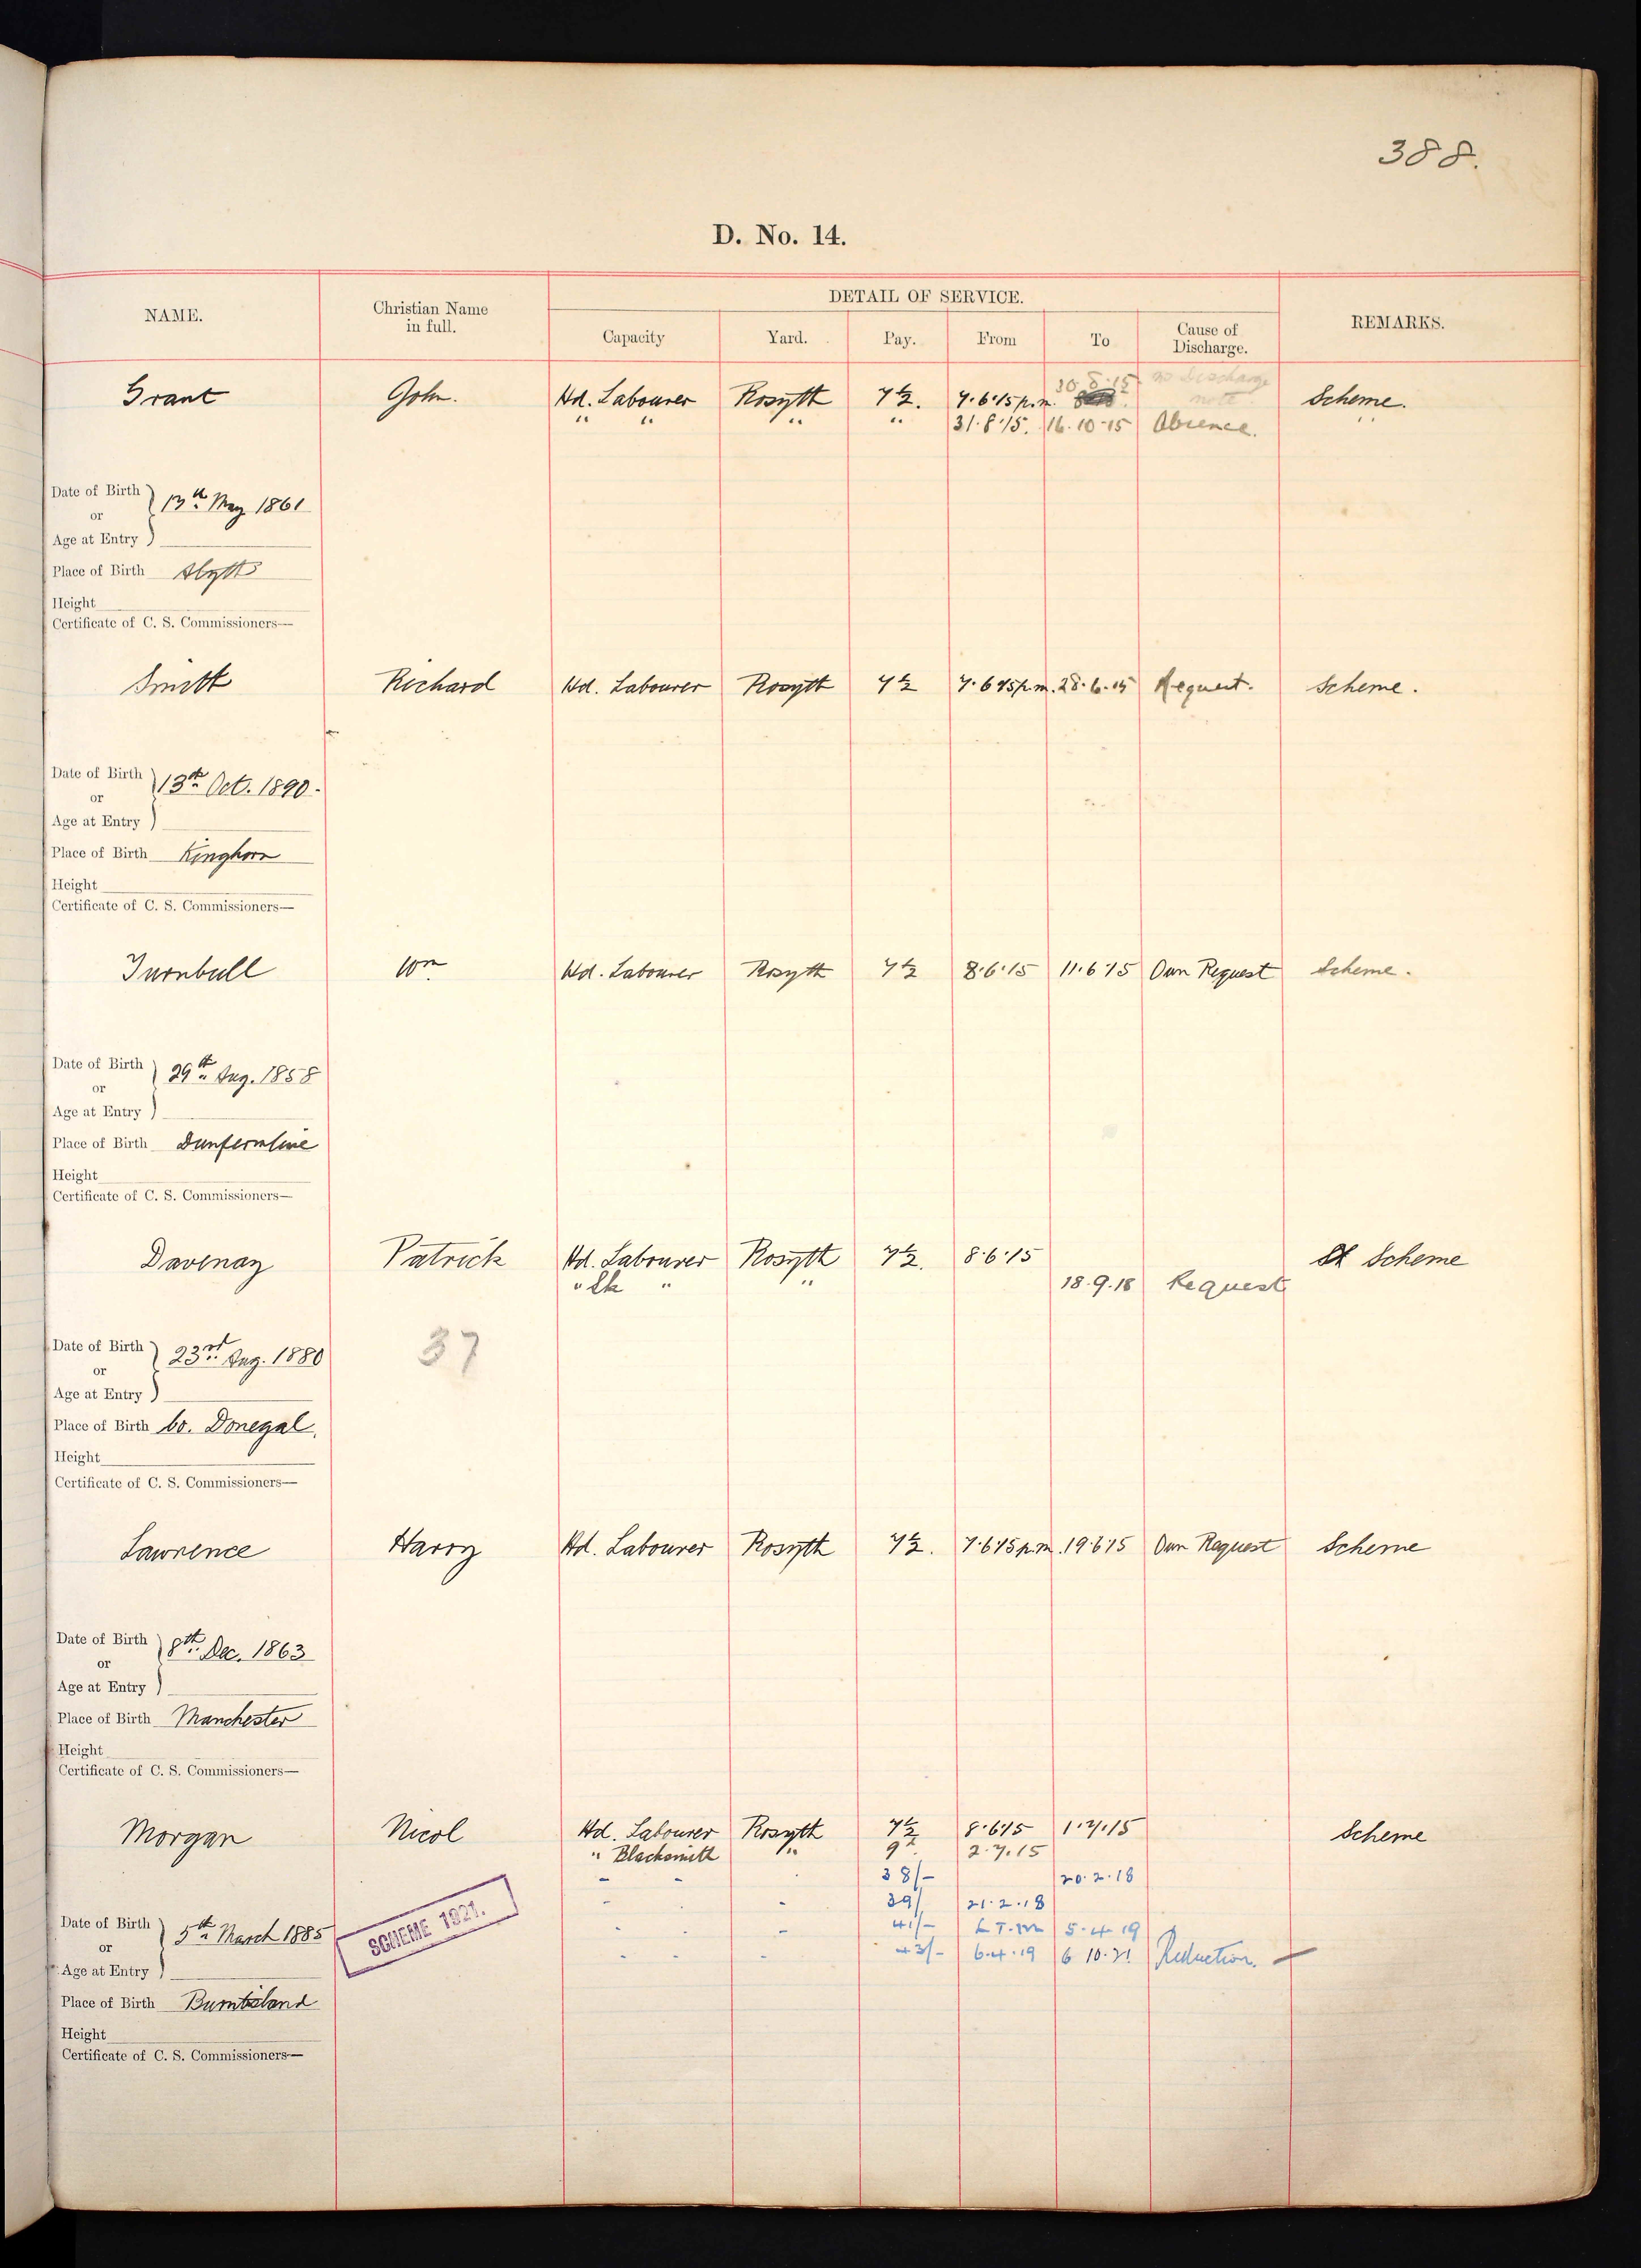 388.
D. No. 14.
NAME. Christian Name in full. DETAIL OF SERVICE. REMARKS.
Capacity Yard. Pay. From To Cause of Discharge.
30.8.15 no Discharge note
Grant John. Hd. Labourer Rosyth 7½. 7.6.15 p.m. Scheme.
" " " " 31.8.15. 16.10.15 Absence. "
Date of Birth or Age at Entry 13th May 1861
Place of Birth Alyth
Height
Certificate of C. S. Commissioners—
Smith Richard Hd. Labourer Rosyth 7½ 7.6.15 p.m. 28.6.15 Request. Scheme.
Date of Birth or Age at Entry 13th Oct. 1890.
Place of Birth Kinghorn
Height
Certificate of C. S. Commissioners—
Turnbull Wm Hd. Labourer Rosyth 7½ 8.6.15 11.6.15 Own Request Scheme.
Date of Birth or Age at Entry 29th Aug. 1858
Place of Birth Dunfermline
Height
Certificate of C. S. Commissioners—
Davenay Patrick Hd. Labourer Rosyth 7½. 8.6.15 Scheme
" Sk " " 18.9.18 Request
37
Date of Birth or Age at Entry 23rd Aug. 1880
Place of Birth Co. Donegal.
Height
Certificate of C. S. Commissioners—
Lawrence Harry Hd. Labourer Rosyth 7½. 7.6.15 p.m. 19.6.15 Own Request Scheme
Date of Birth or Age at Entry 8th Dec. 1863
Place of Birth Manchester
Height
Certificate of C. S. Commissioners—
Morgan Nicol Hd. Labourer Rosyth 7½ 8.6.15 1.7.15 Scheme
" Blacksmith " 9 2.7.15
- - 38/- 20.2.18
- - 39/ 21.2.18
- - - 41/- 5.4.19
- - - 43/- 6.4.19 6.10.21 Reduction. —
SCHEME 1921.
Date of Birth or Age at Entry 5th March 1885
Place of Birth Burntisland
Height
Certificate of C. S. Commissioners—